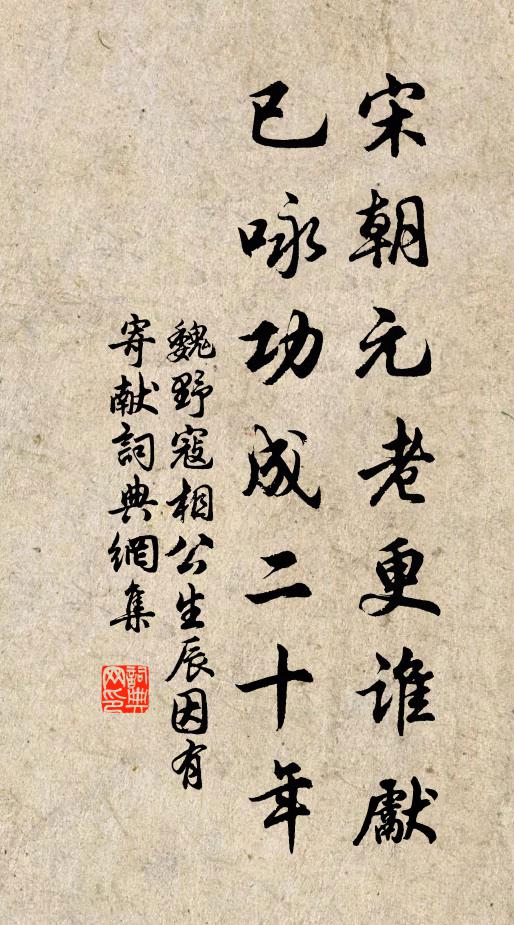 宋朝元老更誰獻
已咏功成二十年
魏野寇相公生辰因有
寄献詞典網集
詞典网印